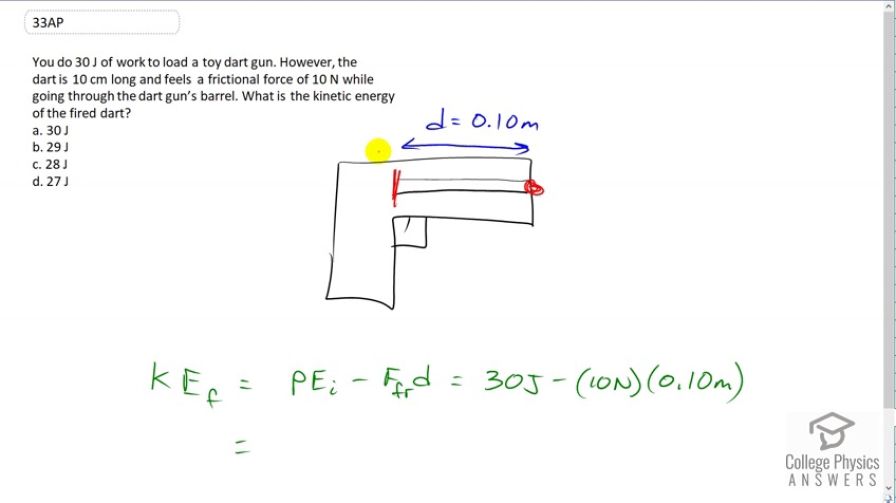 33AP
You do 30 J of work to load a toy dart gun. However, the
dart is 10 cm long and feels a frictional force of 10 N while
going through the dart gun's barrel. What is the kinetic energy
of the fired dart?
a. 30 J
b. 29 J
c. 28 J
d. 27 J
d = 0.10m
KEf = PEi - Ffrd = 30J - (10N)(0.10m)
=
College Physics
ANSWERS